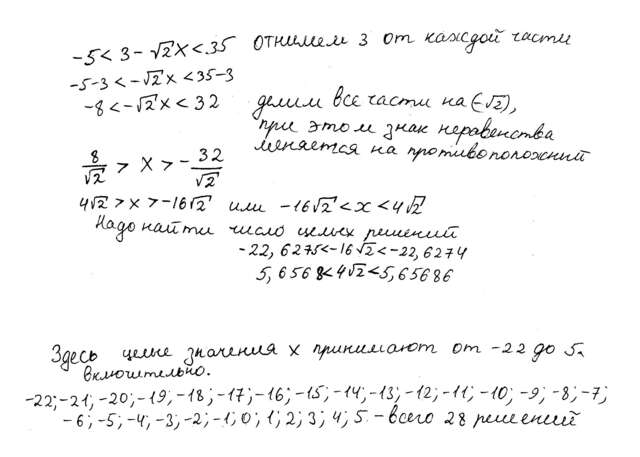 -5 < 3 - √2x < 35 отнимем 3 от каждой части
-5-3 < -√2x < 35-3
-8 < -√2x < 32 делим все части на (-√2),
при этом знак неравенства
меняется на противоположный
8/√2 > x > -32/√2
4√2 > x > -16√2 или -16√2 < x < 4√2
Надо найти число целых решений
-22,6275 < -16√2 < -22,6274
5,6568 < 4√2 < 5,65686
Здесь целые значения x принимают от -22 до 5
включительно.
-22; -21; -20; -19; -18; -17; -16; -15; -14; -13; -12; -11; -10; -9; -8; -7;
-6; -5; -4; -3; -2; -1; 0; 1; 2; 3; 4; 5 - всего 28 решений